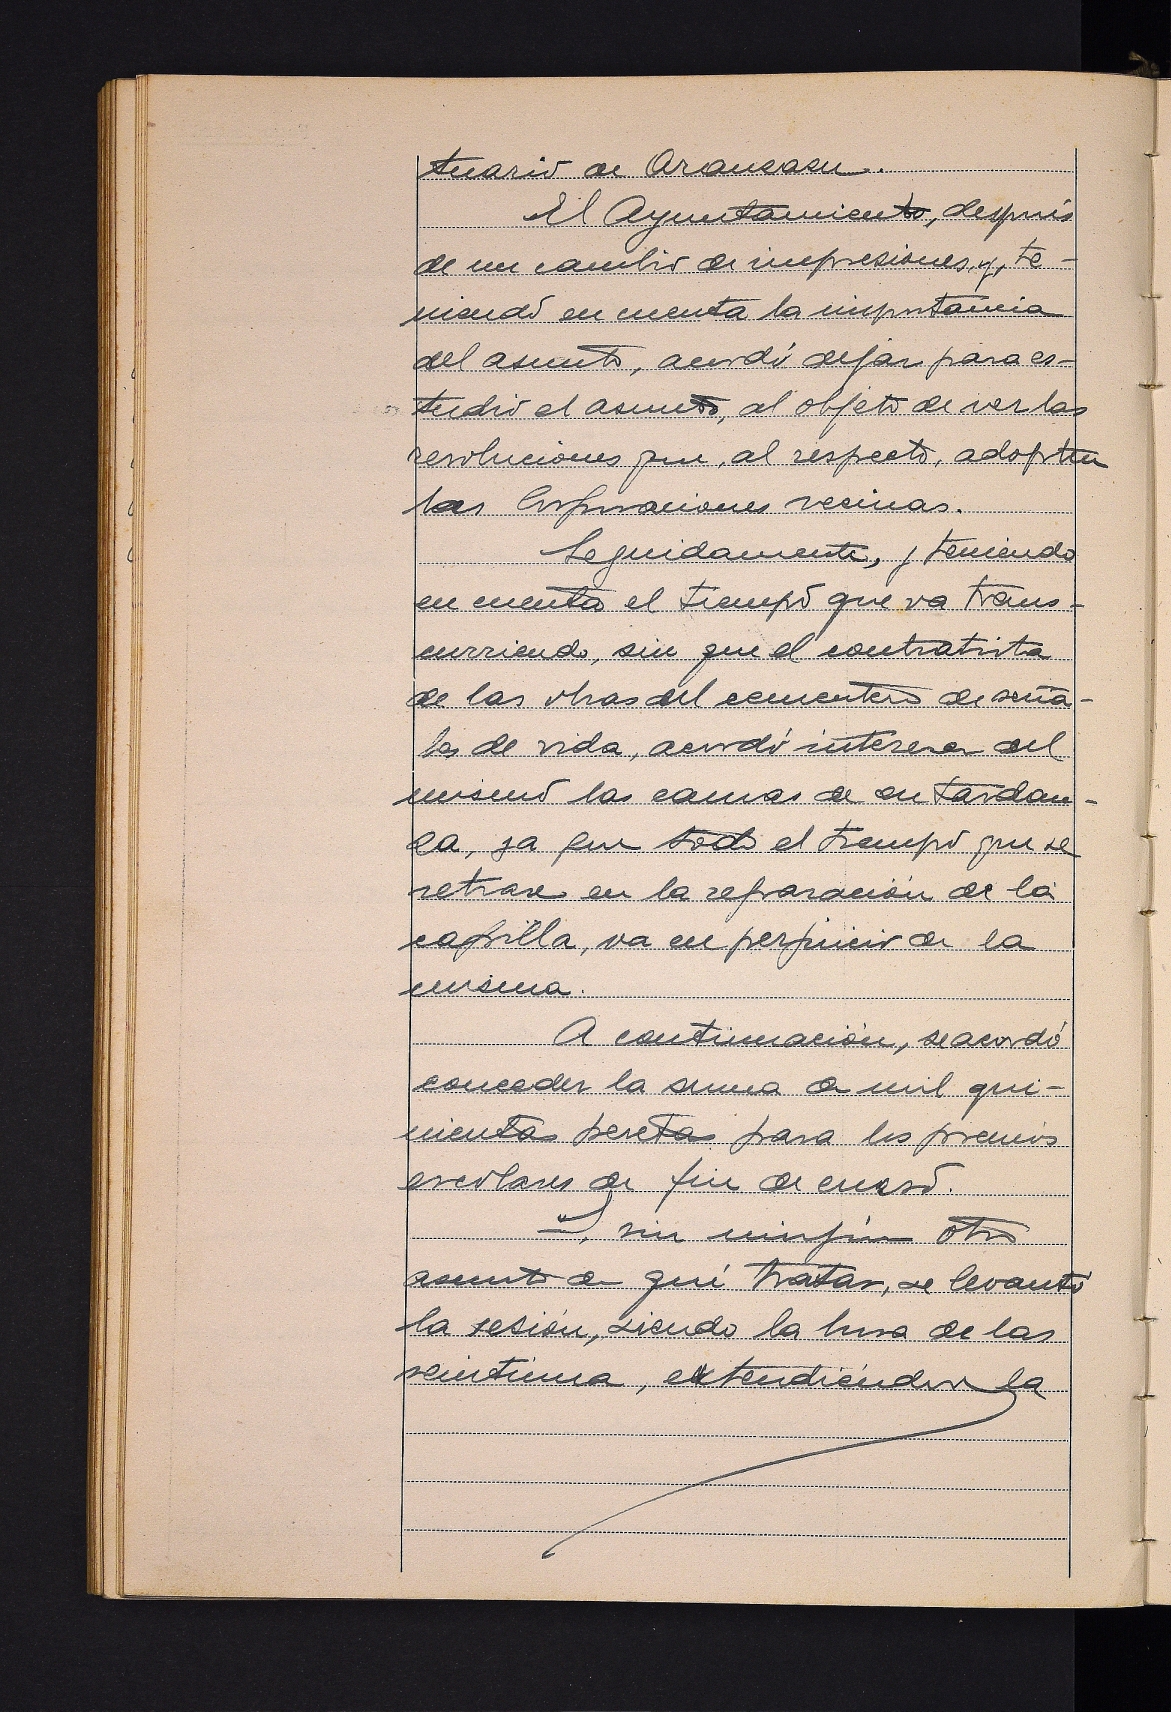 tuario de Aranzazu.
El Ayuntamiento, después
de un cambio de impresiones, y, te-
niendo en cuenta la importancia
del asunto, acordó dejar para es-
tudio el asunto, al objeto de ver las
resoluciones que, al respecto, adopten
las Corporaciones vecinas.
Seguidamente, y teniendo
en cuenta el tiempo que va trans-
curriendo, sin que el contratista
de las obras del cementerio de seña-
les de vida, acordó interesar del
mismo las causas de su tardan-
za, ya que todo el tiempo que se
retrase en la reparación de la
capilla, va en perjuicio de la
misma.
A continuación, se acordó
conceder la suma de mil qui-
nientas pesetas para los premios
escolares de fin de curso.
Y, sin ningún otro
asunto de qué tratar, se levantó
la sesión, siendo la hora de las
veintiuna, extendiéndose la